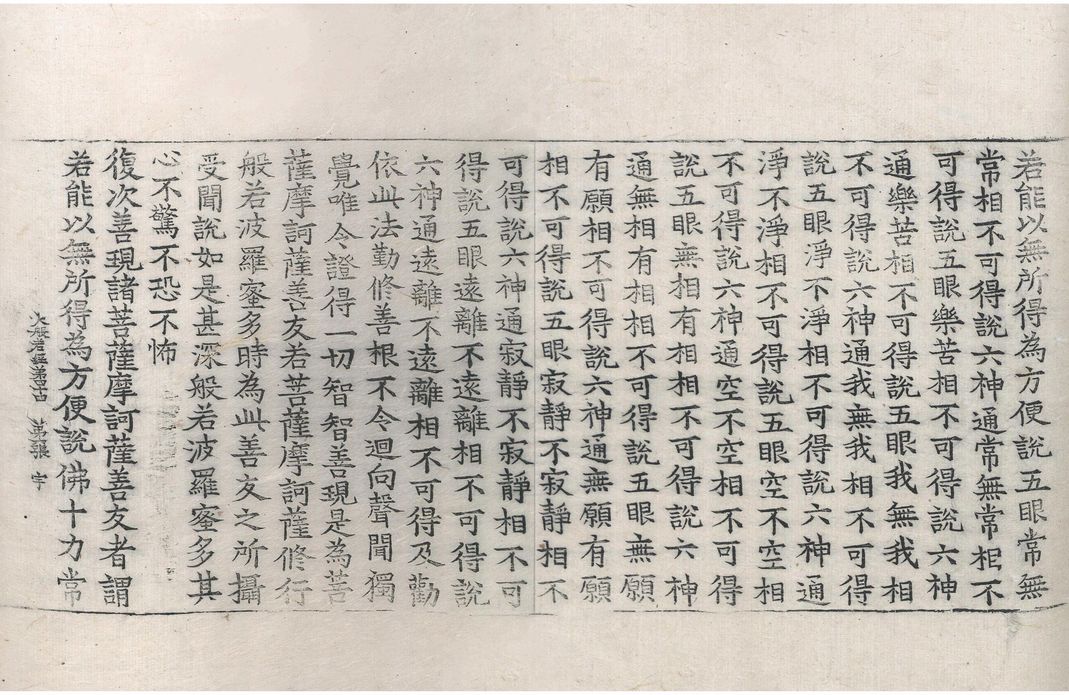 若能以無所得為方便說五眼常無
常相不可得說六神通常無常相不
可得說五眼樂苦相不可得說六神
通樂苦相不可得說五眼我無我相
不可得說六神通我無我相不可得
說五眼淨不淨相不可得說六神通
淨不淨相不可得說五眼空不空相
不可得說六神通空不空相不可得
說五眼無相有相相不可得說六神
通無相有相相不可得說五眼無願
有願相不可得說六神通無願有願
相不可得說五眼寂靜不寂靜相不
可得說六神通寂靜不寂靜相不可
得說五眼遠離不遠離相不可得說
六神通遠離不遠離相不可得及勸
依此法勤修善根不令迴向聲聞獨
覺唯令證得一切智智善現是為菩
薩摩訶薩善友若菩薩摩訶薩修行
般若波羅蜜多時為此善友之所攝
受聞說如是甚深般若波羅蜜多其
心不驚不恐不怖
復次善現諸菩薩摩訶薩善友者謂
若能以無所得為方便說佛十力常
大般若經第 第 張 字